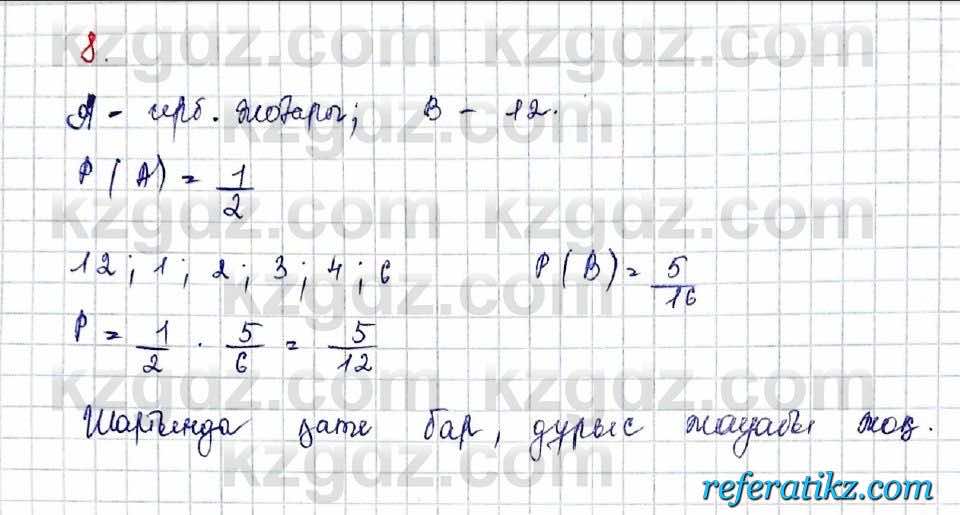 8.
A - герб. жоғары; B - 12.
P(A) = 1/2
12; 1; 2; 3; 4; 6 P(B) = 5/16
P = 1/2 · 5/6 = 5/12
Шартында қате бар, дұрыс жауабы жоқ.
referatikz.com
kzgdz.com kzgdz.com
kzgdz.com kzgdz.com
kzgdz.com kzgdz.com
kzgdz.com kzgdz.com
kzgdz.com
kzgdz.com